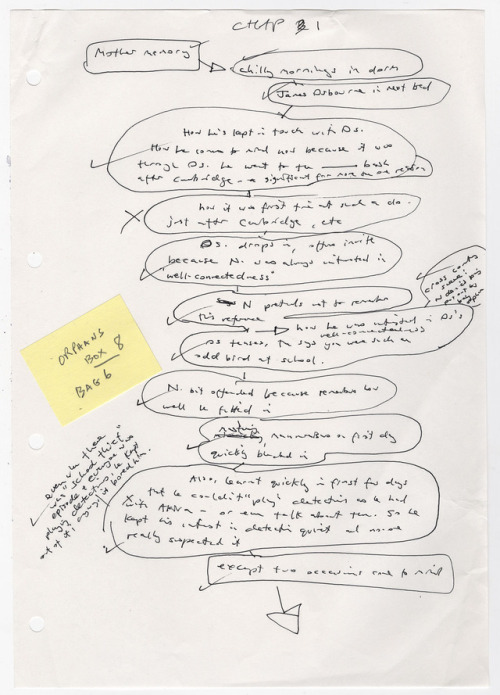 CHAP 1
Mother memory
chilly mornings in dorm
James Osbourne in next bed
How he's kept in touch with Os.
How he comes to mind now because it was
through Os. he went to the bash
after Cambridge - a significant for more than one reason
how it was first time at such a do.
just after Cambridge, etc
Os. drops in, offers invite
because N. was always interested in
"well-connectedness"
N pretends not to remember
this reference
how he was interested in Os's
well-connectedness
Os teases, says you were such an
odd bird at school.
N. bit offended because remembers how
well he fitted in
mannerisms on first day
quickly blended in
Also, learnt quickly in first few days
that he couldn't "play" detectives as he had
with Akira - or even talk about them. So he
kept his interest in detection quiet and no-one
really suspected it
except two occasions come to mind
cross country
ORPHANS
BOX 8
BAG 6
even when there
was "school thief"
episode & everyone was
playing detectives, he kept
out of it, it bored him.